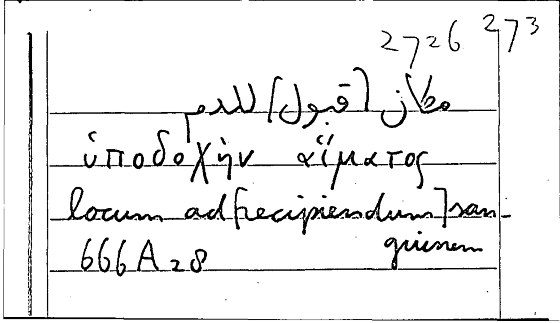 2726 273
مكان [قبول] للدم
ὑποδοχὴν αἵματος
locum ad[recipiendum]san-
guinem
666A28